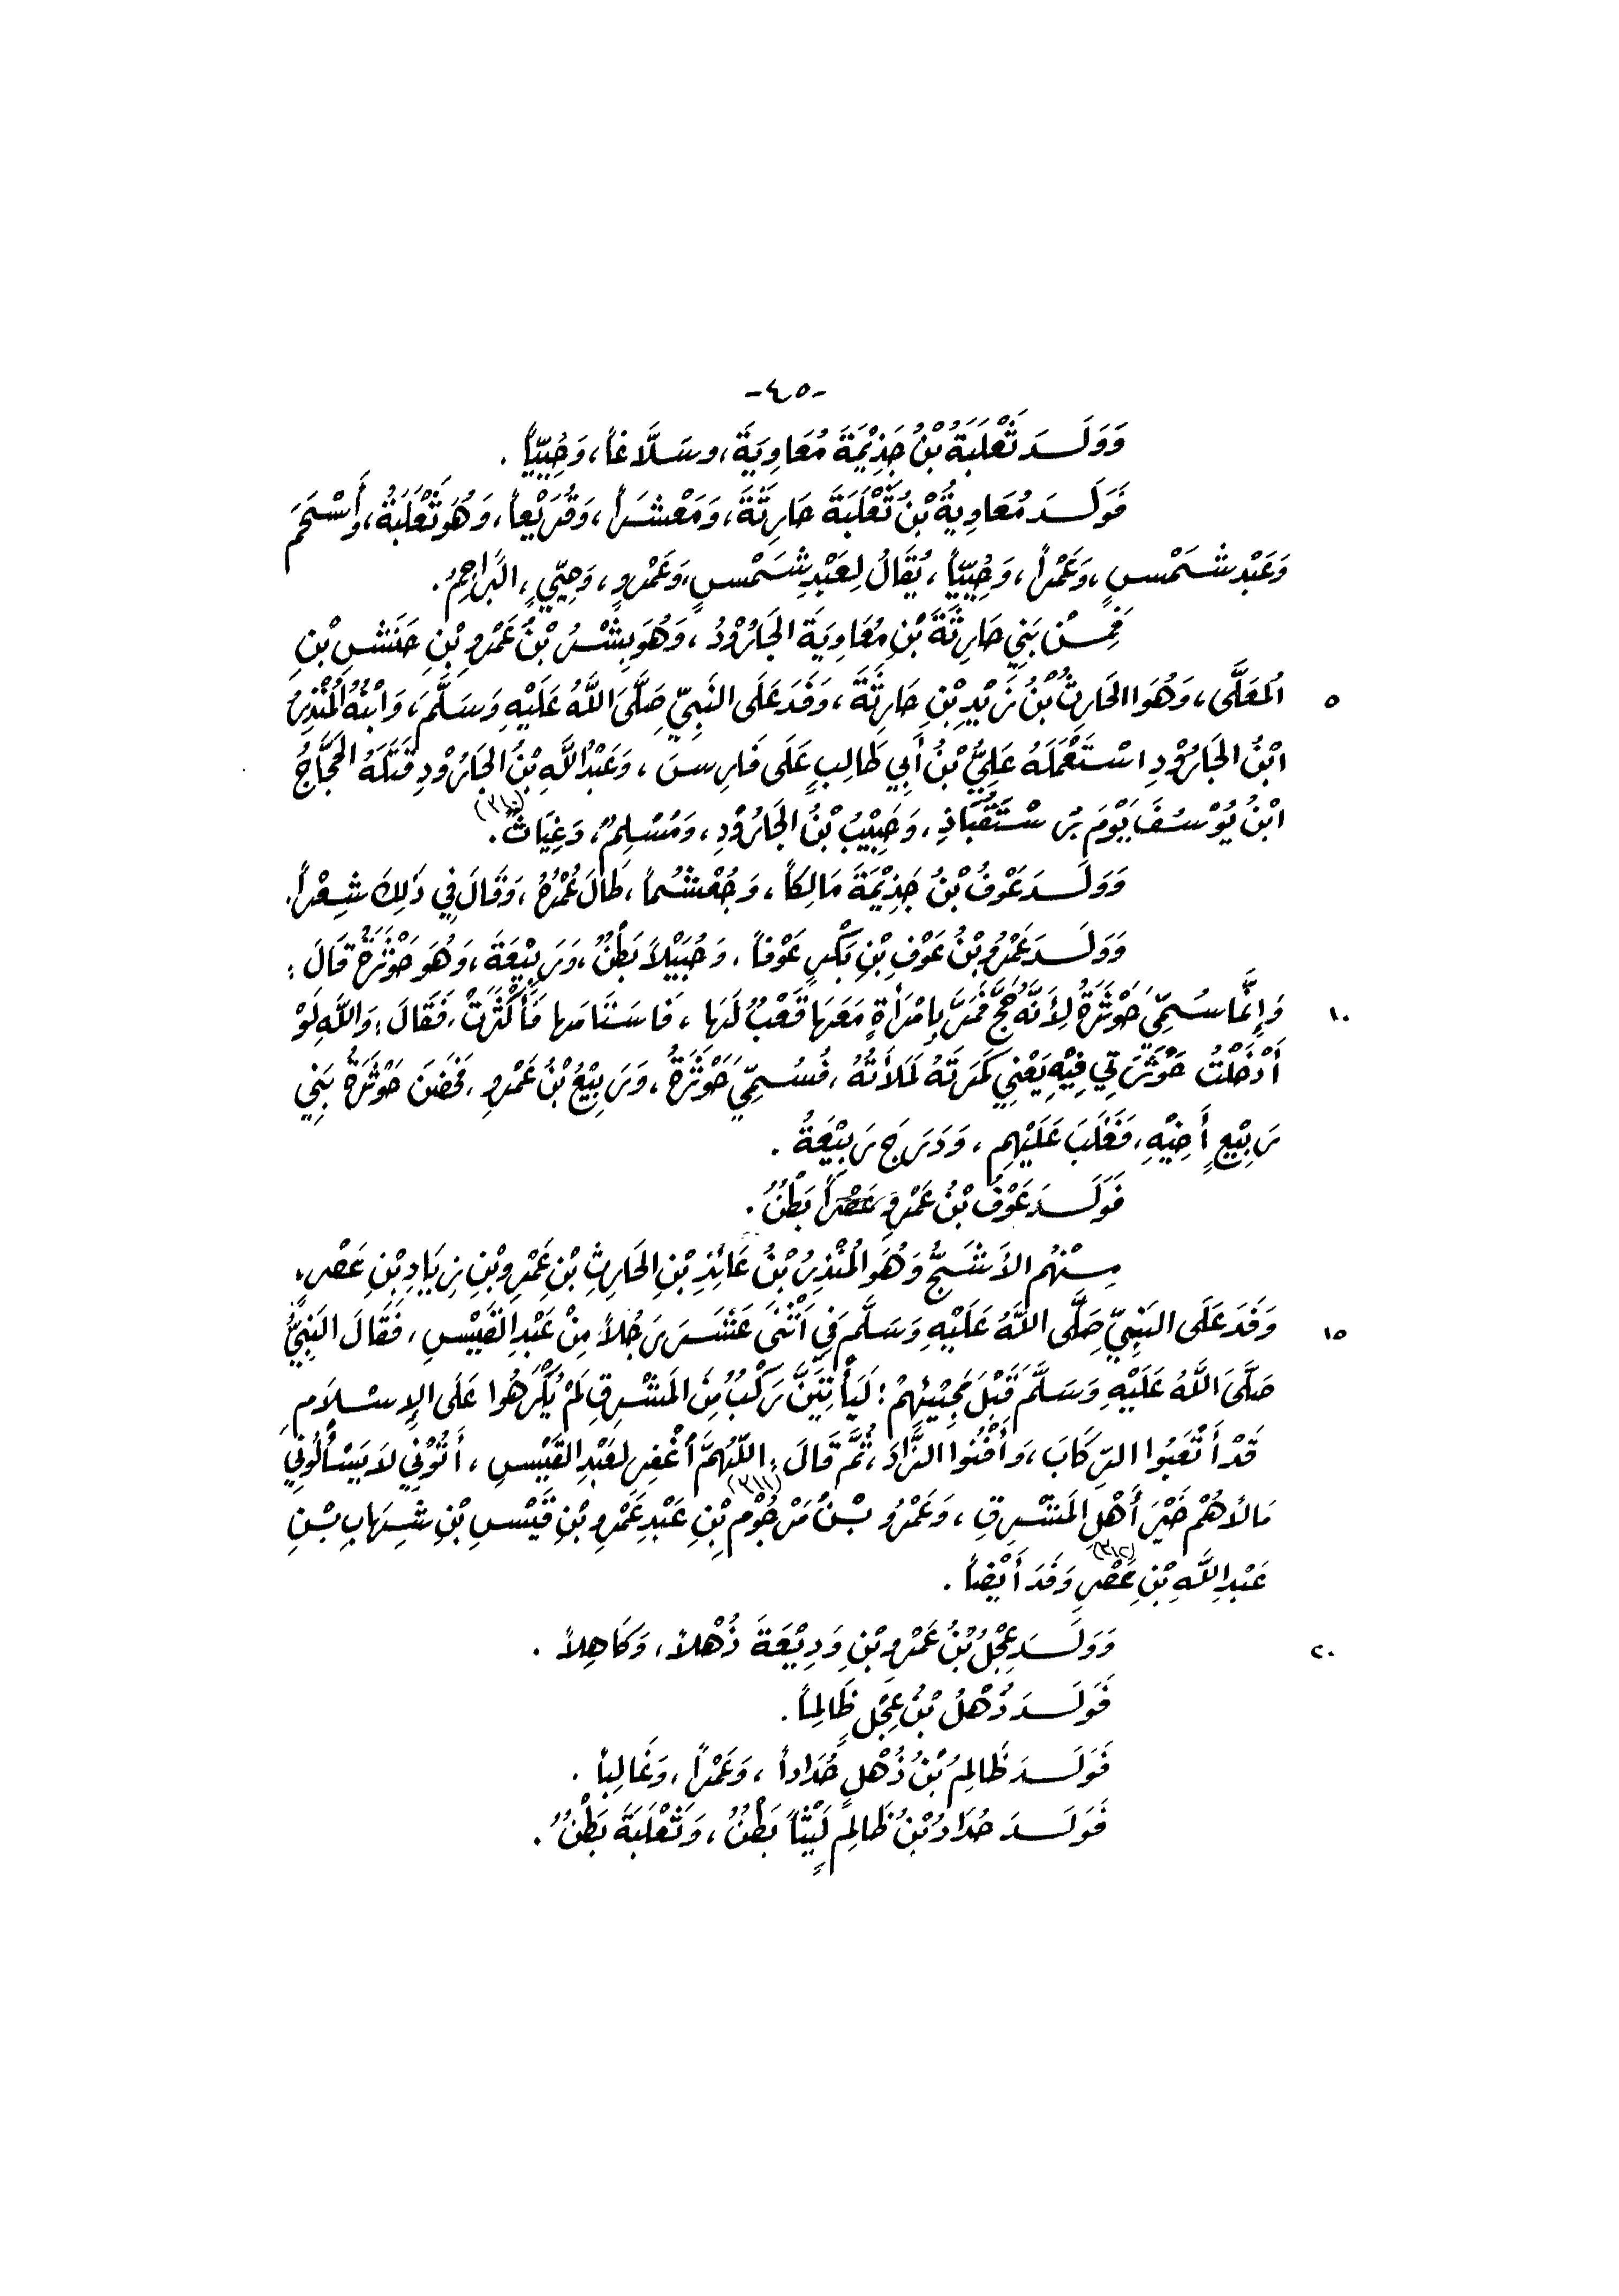 -٤٥-
وَوَلَـدَ ثَعْلَبَةُ بْنُ جَذِيْمَةَ مُعَاوِيَةَ، وسَلَّاغاً، وَحُيَيّاً .
فَوَلَـدَ مُعَاوِيَةُ بْنُ ثَعْلَبَةَ حَارِثَةَ، وَمَعْشَراً، وَقُرَيْعاً، وَهُوَ ثَعْلَبَةُ، وَأَسْحَمَ
وَعَبْدِ شَمْسٍ، وَعَمْراً، وَحُيَيّاً، يُقَالُ لِعَبْدِ شَمْسٍ، وَعَمْرٍو، وَحِيَيٍّ، البَرَاجِمُ.
فَمِـنْ بَنِي حَارِثَةَ بْنِ مُعَاوِيَةَ الجَارُوْدُ، وَهُوَ بِشْرُ بْنُ عَمْرِو بْنِ حَنَشِ بْنِ
٥ المُعَلَّى، وَهُوَ الحَارِثُ بْنُ زَيْدِ بْنِ حَارِثَةَ، وَفَدَ عَلَى النَّبِيِّ صَلَّى اللَّهُ عَلَيْهِ وَسَلَّمَ، وَابْنُهُ المُنْذِرُ
ابْنُ الجَارُوْدِ اسْتَعْمَلَهُ عَلِيُّ بْنُ أَبِي طَالِبٍ عَلَى فَارِسَ، وَعَبْدُ اللَّهِ بْنُ الجَارُوْدِ قَتَلَهُ الحَجَّاجُ
ابْنُ يُوْسُفَ يَوْمَ رُسْتَقُبَاذِ، وَحَبِيْبُ بْنُ الجَارُوْدِ، وَمُسْلِمٌ، وَغِيَاثٌ.(٣١٠)
وَوَلَـدَ عَوْفُ بْنُ جَذِيْمَةَ مَالِكاً، وَجُعْشُماً، طَالَ عُمْرُهُ، وَقَالَ فِي ذَلِكَ شِعْراً.
وَوَلَـدَ عَمْرُو بْنُ عَوْفِ بْنِ بَكْرٍ عَوْفاً، وَحُبَيْلاً بَطْنٌ، وَرَبِيْعَةَ، وَهُوَ حَوْثَرَةُ قَالَ:
١٠ وَإِنَّمَا سُمِّيَ حَوْثَرَةُ لِأَنَّهُ حَجَّ فَمَرَّ بِامْرَأَةٍ مَعَهَا قَعْبٌ لَهَا، فَاسْتَامَهَا فَأَكْثَرَتْ، فَقَالَ: وَاللَّهِ لَوْ
أَدْخَلْتُ حَوْثَرَتِي فِيْهِ يَعْنِي كَمَرَتَهُ لَمَلَأَتْهُ، فَسُمِّيَ حَوْثَرَةُ، وَرَبِيْعُ بْنُ عَمْرٍو، فَحَضَنَ حَوْثَرَةُ بَنِي
رَبِيْعٍ أَخِيْهِ، فَغَلَبَ عَلَيْهِم، وَدَرَجَ رَبِيْعَةُ .
فَوَلَـدَ عَوْفُ بْنُ عَمْرٍو عَصْراً بَطْنٌ .
مِـنْهُم الأَشَجُّ وَهُوَ المُنْذِرُ بْنُ عَائِذِ بْنِ الحَارِثِ بْنِ عَمْرِو بْنِ زِيَادِ بْنِ عَصْرٍ،
١٥ وَفَدَ عَلَى النَّبِيِّ صَلَّى اللَّهُ عَلَيْهِ وَسَلَّمَ فِي اثْنَي عَشَرَ رَجُلاً مِنْ عَبْدِ القَيْسِ، فَقَالَ النَّبِيُّ
صَلَّى اللَّهُ عَلَيْهِ وَسَلَّمَ قَبْلَ مَجِيْئِهِمْ: لَيَأْتِيَنَّ رَكْبٌ مِنَ المَشْرِقِ لَمْ يُكْرَهُوا عَلَى الإِسْلَامِ
قَدْ أَتْعَبُوا الرِّكَابَ، وَأَفْنُوا الزَّادَ، ثُمَّ قَالَ: اللَّهُمَّ اغْفِر لِعَبْدِ القَيْسِ، أَتُوْنِي لَا يَسْأَلُونِي
مَالاً هُمْ خَيْرُ أَهْلِ المَشْرِقِ، وَعَمْرُو بْنُ مَرْجُوْمِ(٣١١) بْنِ عَبْدِ عَمْرِو بْنِ قَيْسِ بْنِ شِهَابِ بْـنِ
عَبْدِ اللَّهِ بْنِ عَصْرٍ(٣١٢) وَفَدَ أَيْضاً .
٢٠ وَوَلَـدَ عِجْلُ بْنُ عَمْرِو بْنِ وَدِيْعَةَ ذُهْلاً، وَكَاهِلاً .
فَوَلَـدَ ذُهْلُ بْنُ عِجْلٍ ظَالِماً .
فَوَلَـدَ ظَالِمُ بْنُ ذُهْلٍ حُدَاداً، وَعَمْراً، وَغَالِباً .
فَوَلَـدَ حُدَادُ بْنُ ظَالِمٍ لَيْثاً بَطْنٌ، وَثَعْلَبَةَ بَطْنٌ .